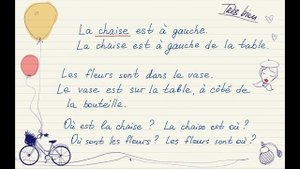 Très bien
La chaise est à gauche.
La chaise est à gauche de la table.
Les fleurs sont dans le vase.
Le vase est sur la table, à côté de
la bouteille.
Où est la chaise ? La chaise est où ?
Où sont les fleurs ? Les fleurs sont où ?